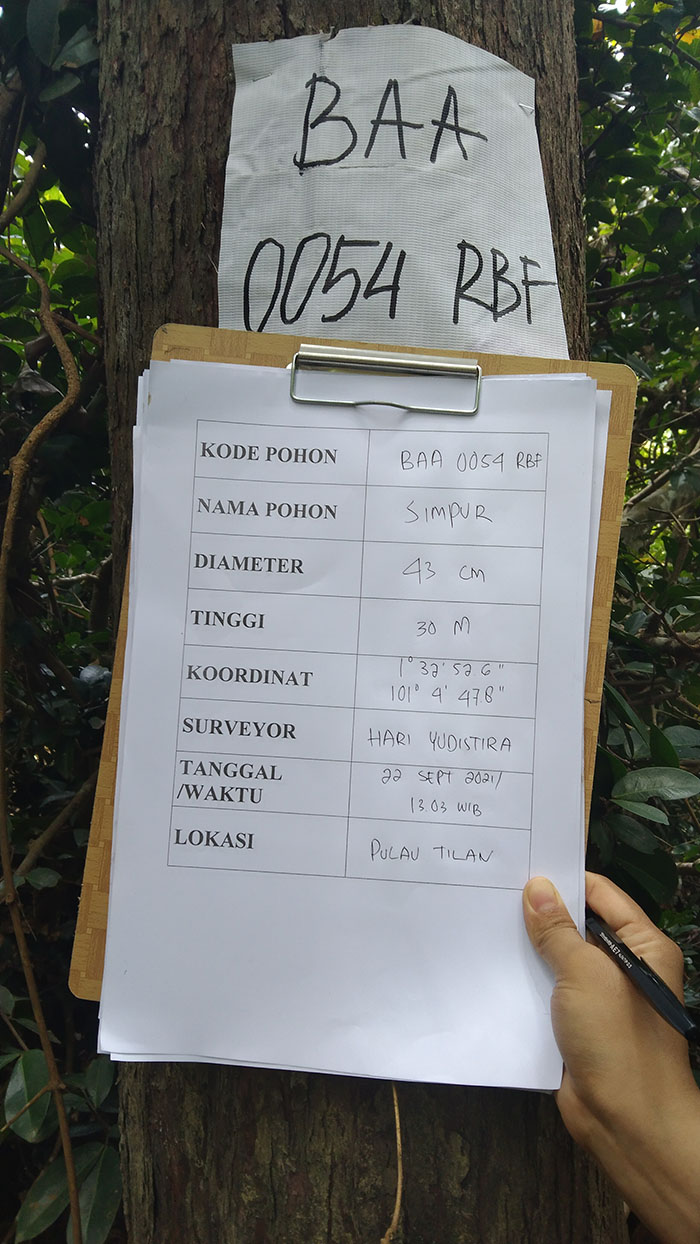 BAA
0054 RBF
KODE POHON BAA 0054 RBF
NAMA POHON SIMPUR
DIAMETER 43 CM
TINGGI 30 M
KOORDINAT 1° 32' 52.6"
101° 4' 47.8"
SURVEYOR HARI YUDISTIRA
TANGGAL 22 SEPT 2021/
/WAKTU 13.03 WIB
LOKASI PULAU TILAN